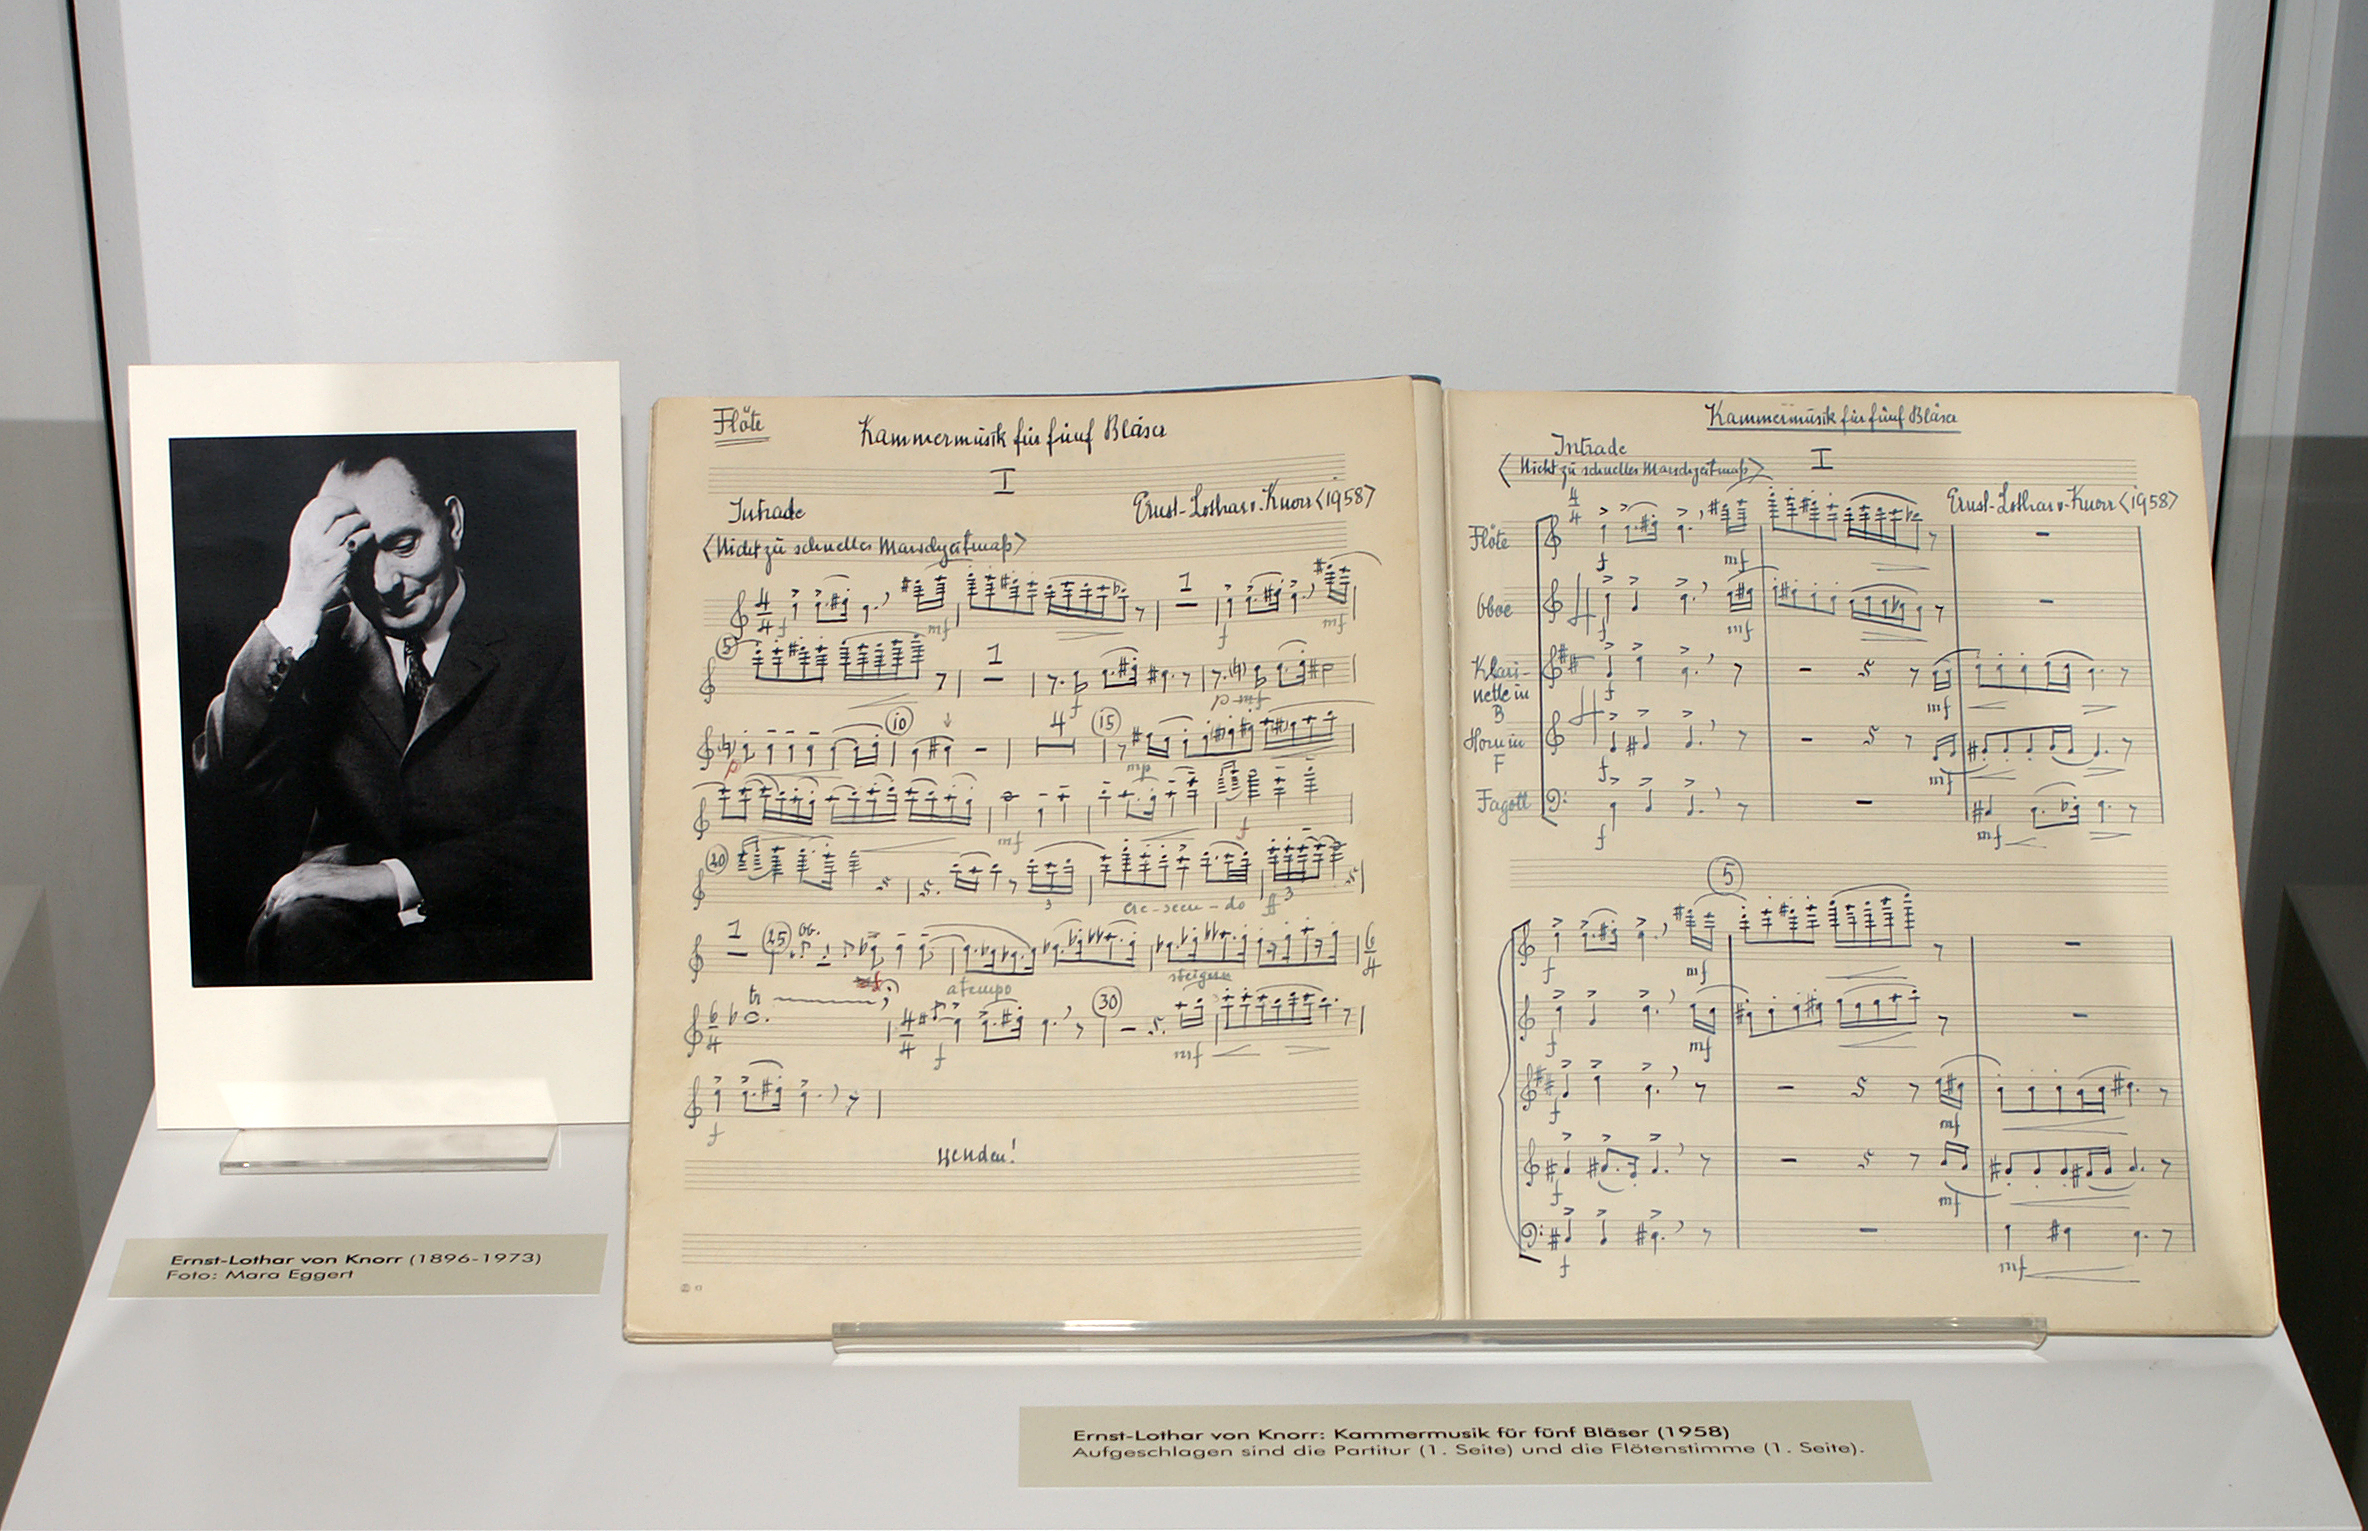 Ernst-Lothar von Knorr (1896-1973)
Foto: Mara Eggert
Flöte
Kammermusik für fünf Bläser
I
Intrade
Ernst-Lothar v. Knorr <1958>
<Nicht zu schnelles Marschzeitmaß>
4/4
f
mf
1
f
mf
5
1
f
10
4
15
p
mp
mf
f
20
3
cre-scen-do ff 3
1
25
ob.
6/4
a tempo
steigern
6/4
tr
4/4
f
30
mf
f
Wenden!
Kammermusik für fünf Bläser
Intrade
I
<Nicht zu schnelles Marschzeitmaß>
Ernst-Lothar v. Knorr <1958>
4/4
Flöte
f
mf
Oboe
f
mf
Klari-
nette in
B
f
mf
Horn in
F
f
mf
Fagott
f
mf
5
f
mf
f
mf
f
mf
f
mf
f
mf
Ernst-Lothar von Knorr: Kammermusik für fünf Bläser (1958)
Aufgeschlagen sind die Partitur (1. Seite) und die Flötenstimme (1. Seite).